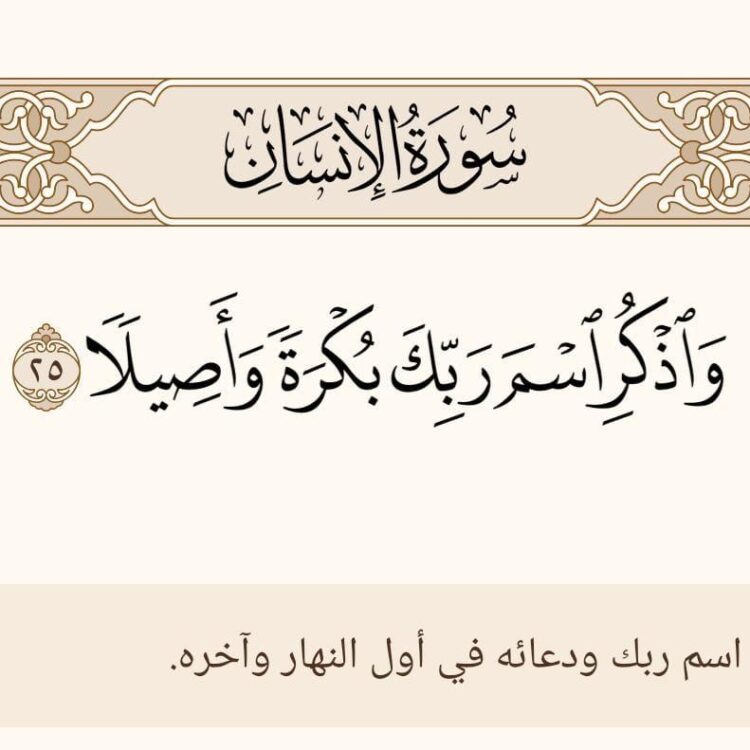 سُورَةُ الْإِنسَانِ
وَٱذۡكُرِ ٱسۡمَ رَبِّكَ بُكۡرَةٗ وَأَصِيلٗا ٢٥
اسم ربك ودعائه في أول النهار وآخره.